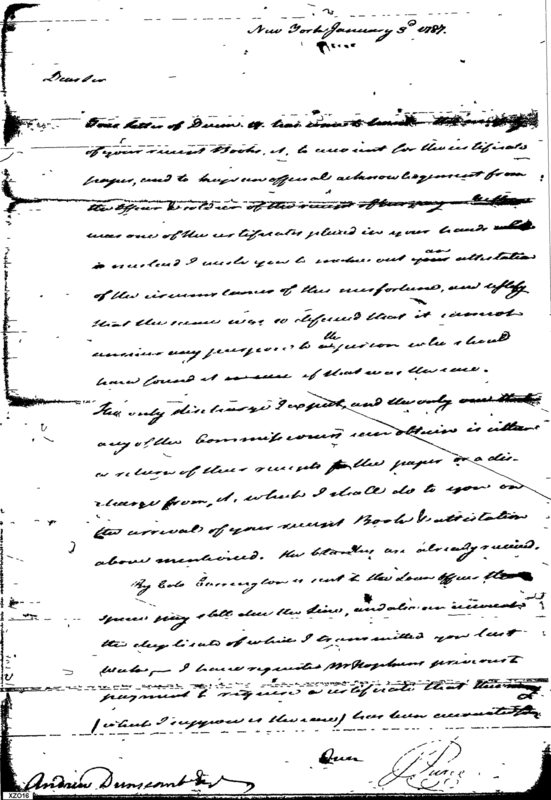 New York January 3d 1787.
Dear Sir
Your letter of Decem. has
of your receipt Book, to account for the certificate
paper, and to keep an official acknowledgement from
the officer & soldier of the receipt of
was one of the certificates placed in your hands
is I wish you to make out an attestation
of the circumstances of this misfortune, and
that the same was so defaced that it cannot
answer any purpose to the person who should
have found it in case if that was the case.
The only discharge I expect, and the only one that
any of the Commissioners can obtain is either
a return of their receipts for the paper or a dis-
charge from, it, which I shall do to you on
the arrival of your receipt Book & attestation
above mentioned. The blanks are already received.
By Colo Carrington is sent to the Loan Officer the
pay still due the Line, and also an
the duplicate of which I transmitted you last
I have requested Mr Hopkins previous to
payment to require a certificate that the
(which I suppose is the case) has been
Over
J Pierce
Andrew Dunscomb
XZO16